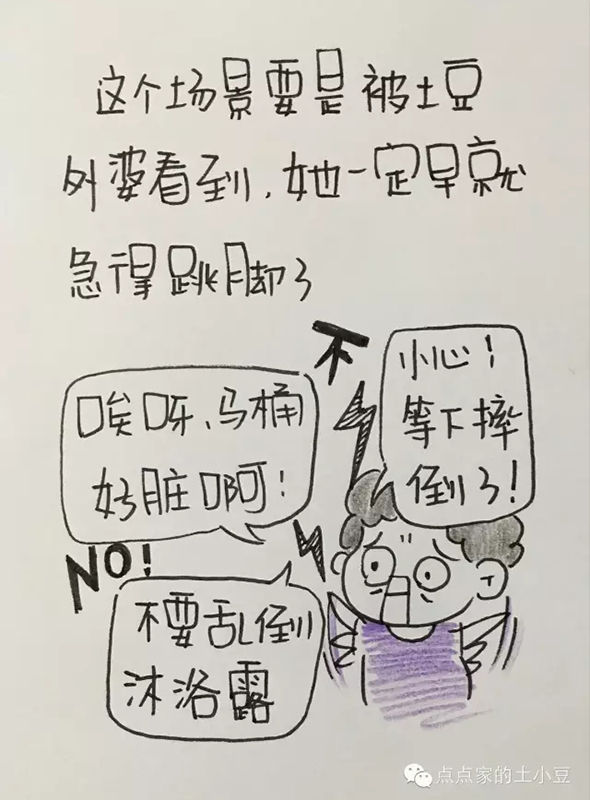 这个场景要是被土豆
外婆看到,她一定早就
急得跳脚了
不
小心!
等下摔
倒了!
唉呀、马桶
好脏啊!
NO!
不要乱倒
沐浴露
点点家的土小豆